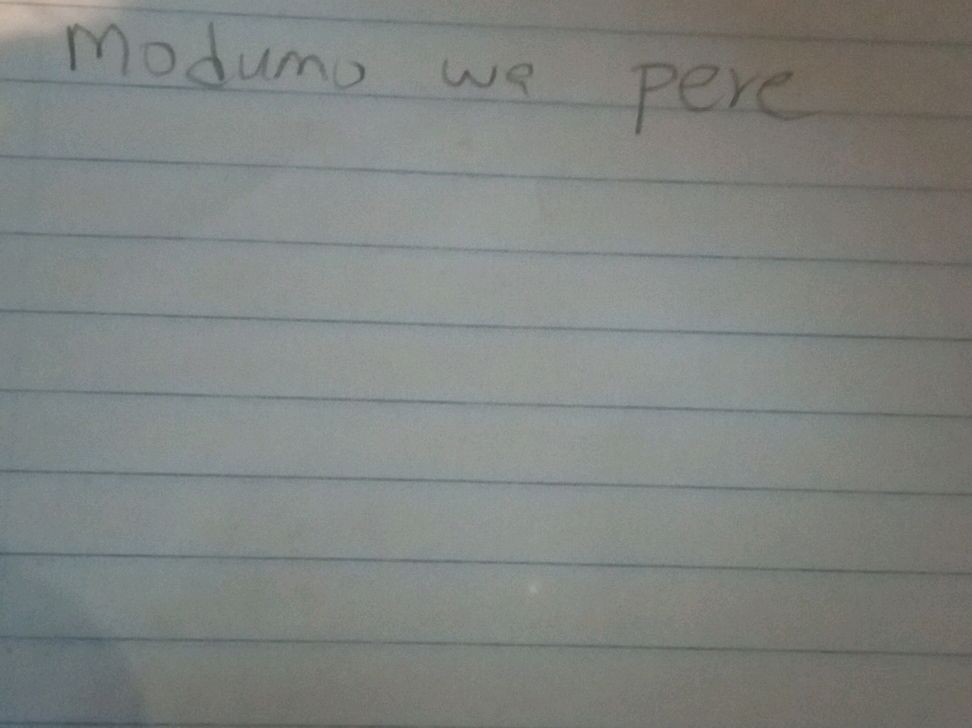 Modumo wa pere